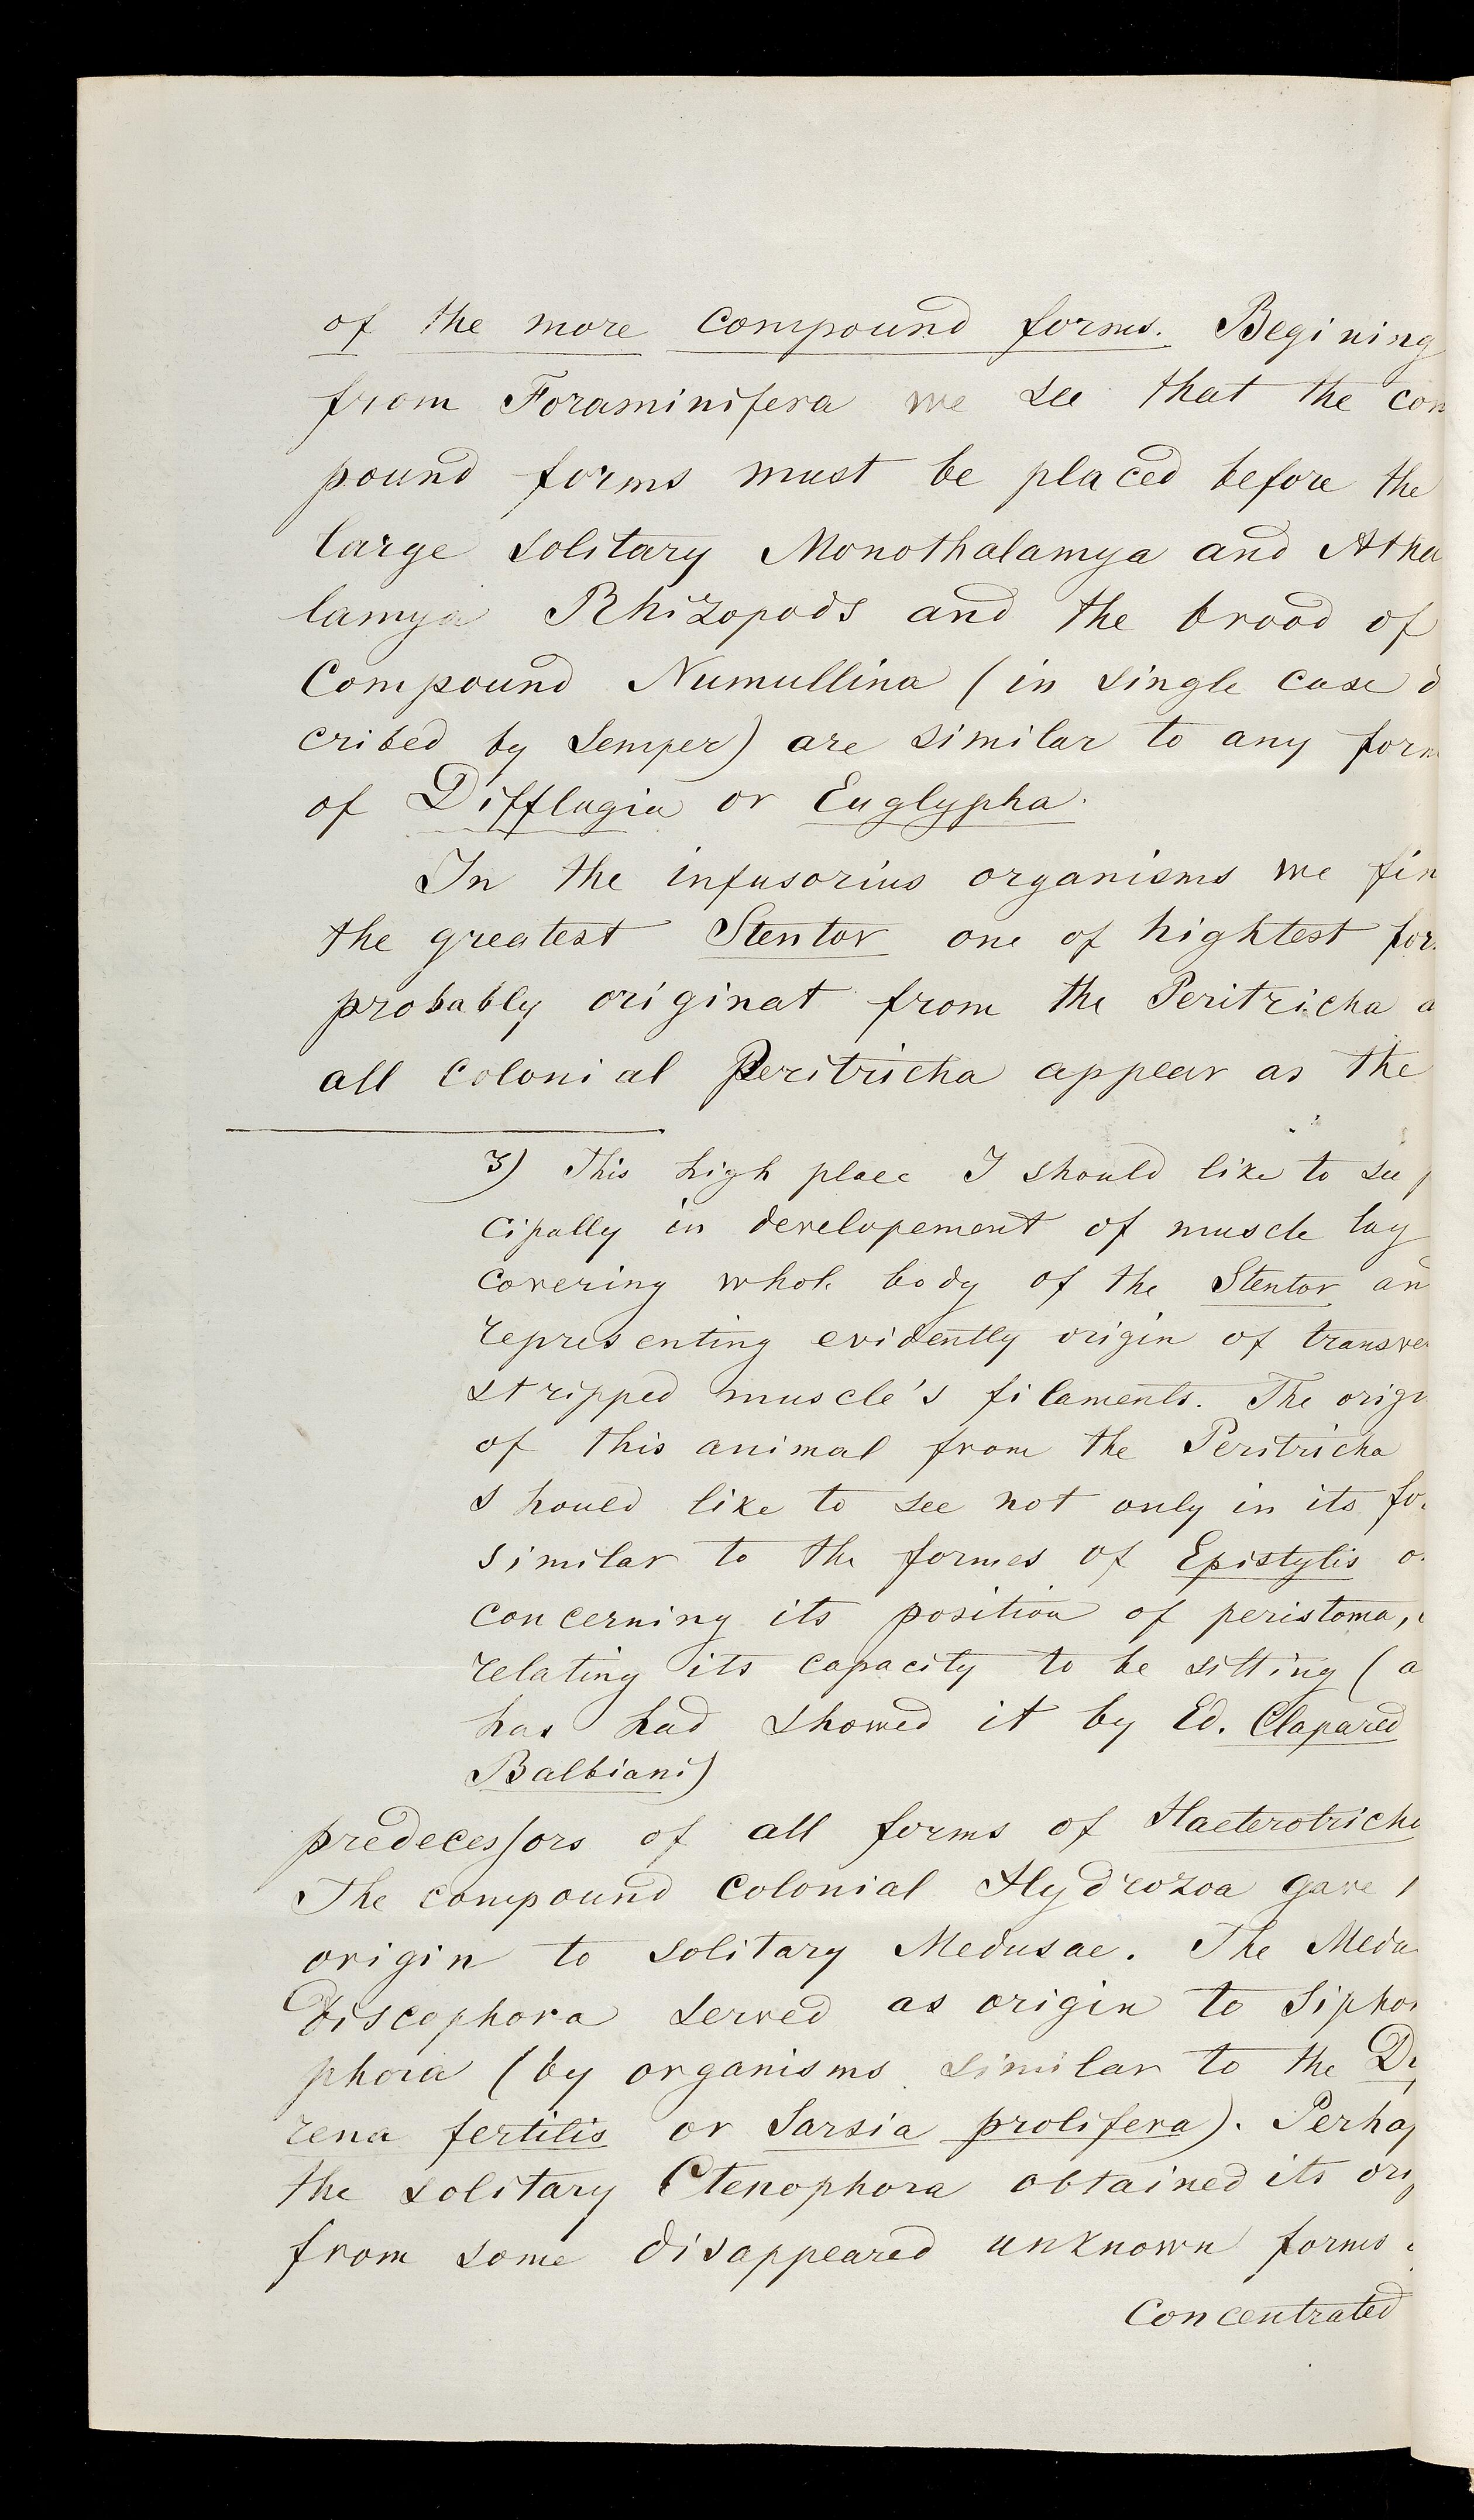 of the more compound forms. Begining
from Foraminifera we see that the com
pound forms must be placed before the
large solitary Monothalamya and Atha
lamya Rhizopods and the brood of
Compound Numullina (in single case d
cribed by Semper) are similar to any form
of Difflugia or Euglypha.
In the infusorius organisms we fin
the greatest Stentor one of hightest for
probably originat from the Peritricha a
all colonial Peritricha appear as the
3) This high place I should like to see p
cipally in developement of muscle lay
covering whole body of the Stentor an
representing evidently origin of transver
stripped muscle's filaments. The origi
of this animal from the Peritricha
should like to see not only in its fo
similar to the formes of Epistylis o
concerning its position of peristoma,
relating its capacity to be sitting (a
has had showed it by Ed. Clapared
Balbiani)
predecessors of all forms of Haeterotricha
The compound colonial Hydrozoa gave
origin to solitary Medusae. The Medu
Discophora served as origin to Sipho
phora (by organisms similar to the Dy
rena fertilis or Sarsia prolifera). Perhap
the solitary Ctenophora obtained its orig
from some disappeared unknown forms
Concentrated